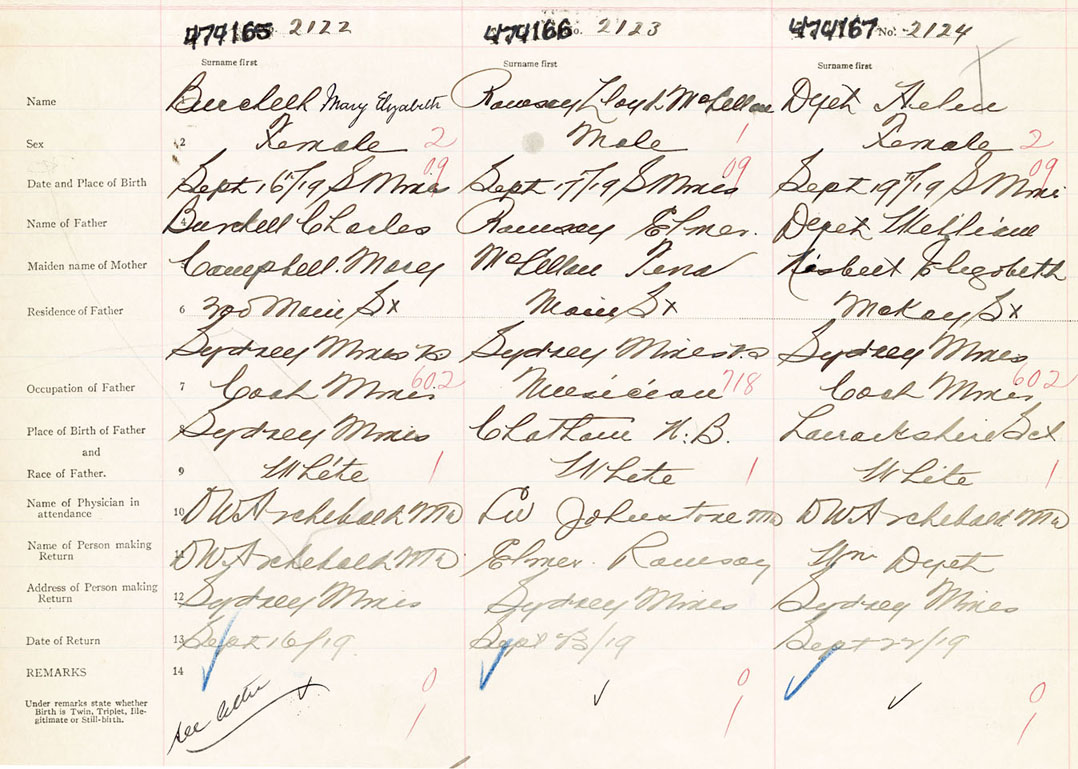 474165 No. 2122 474166 No. 2123 474167 No. 2124
Surname first Surname first Surname first
Name Burchell Mary Elizabeth Ramsay Lloyd McLellan Dyet Helen
Sex 2 Female 2 Male 1 Female 2
Date and Place of Birth Sept 16/19 S Mines 09 Sept 17/19 S Mines 09 Sept 19/19 S Mines 09
Name of Father 4 Burchell Charles Ramsay Elmer. Dyet William
Maiden name of Mother Campbell. Mary McLellan Tena Nisbett Elizabeth
Residence of Father 6 Main St Main St McKay St
Sydney Mines NS Sydney Mines N.S Sydney Mines
Occupation of Father 7 Coal Miner 602 Musician 718 Coal Miner 602
Place of Birth of Father 8 Sydney Mines Chatham N.B. Lanarkshire Sct
and
Race of Father. 9 White 1 White 1 White 1
Name of Physician in
attendance 10 DW Archibald MD LW Johnstone MD DW Archibald MD
Name of Person making
Return 11 DW Archibald MD Elmer. Ramsay Wm Dyet
Address of Person making
Return 12 Sydney Mines Sydney Mines Sydney Mines
Date of Return 13 Sept 16/19 Sept 23/19 Sept 22/19
REMARKS 14
0 0 0
Under remarks state whether
Birth is Twin, Triplet, Ille-
gitimate or Still-birth. see letter 1 1 1